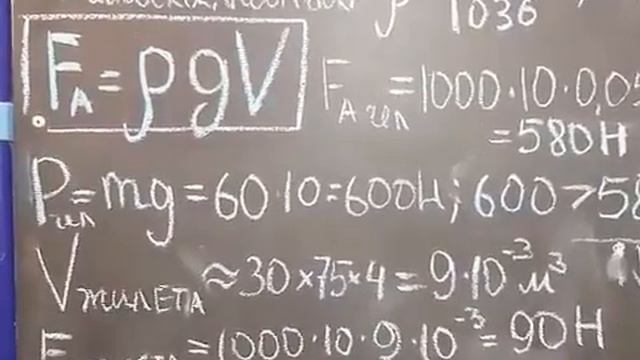 ρ 1036
F_A = ρgV F_A чел = 1000·10·0,0
= 580 Н
P_чел = mg = 60·10 = 600 Н; 600 > 58
V_жилета ≈ 30×75×4 = 9·10⁻³ м³
= 1000·10·9·10⁻³ = 90 Н